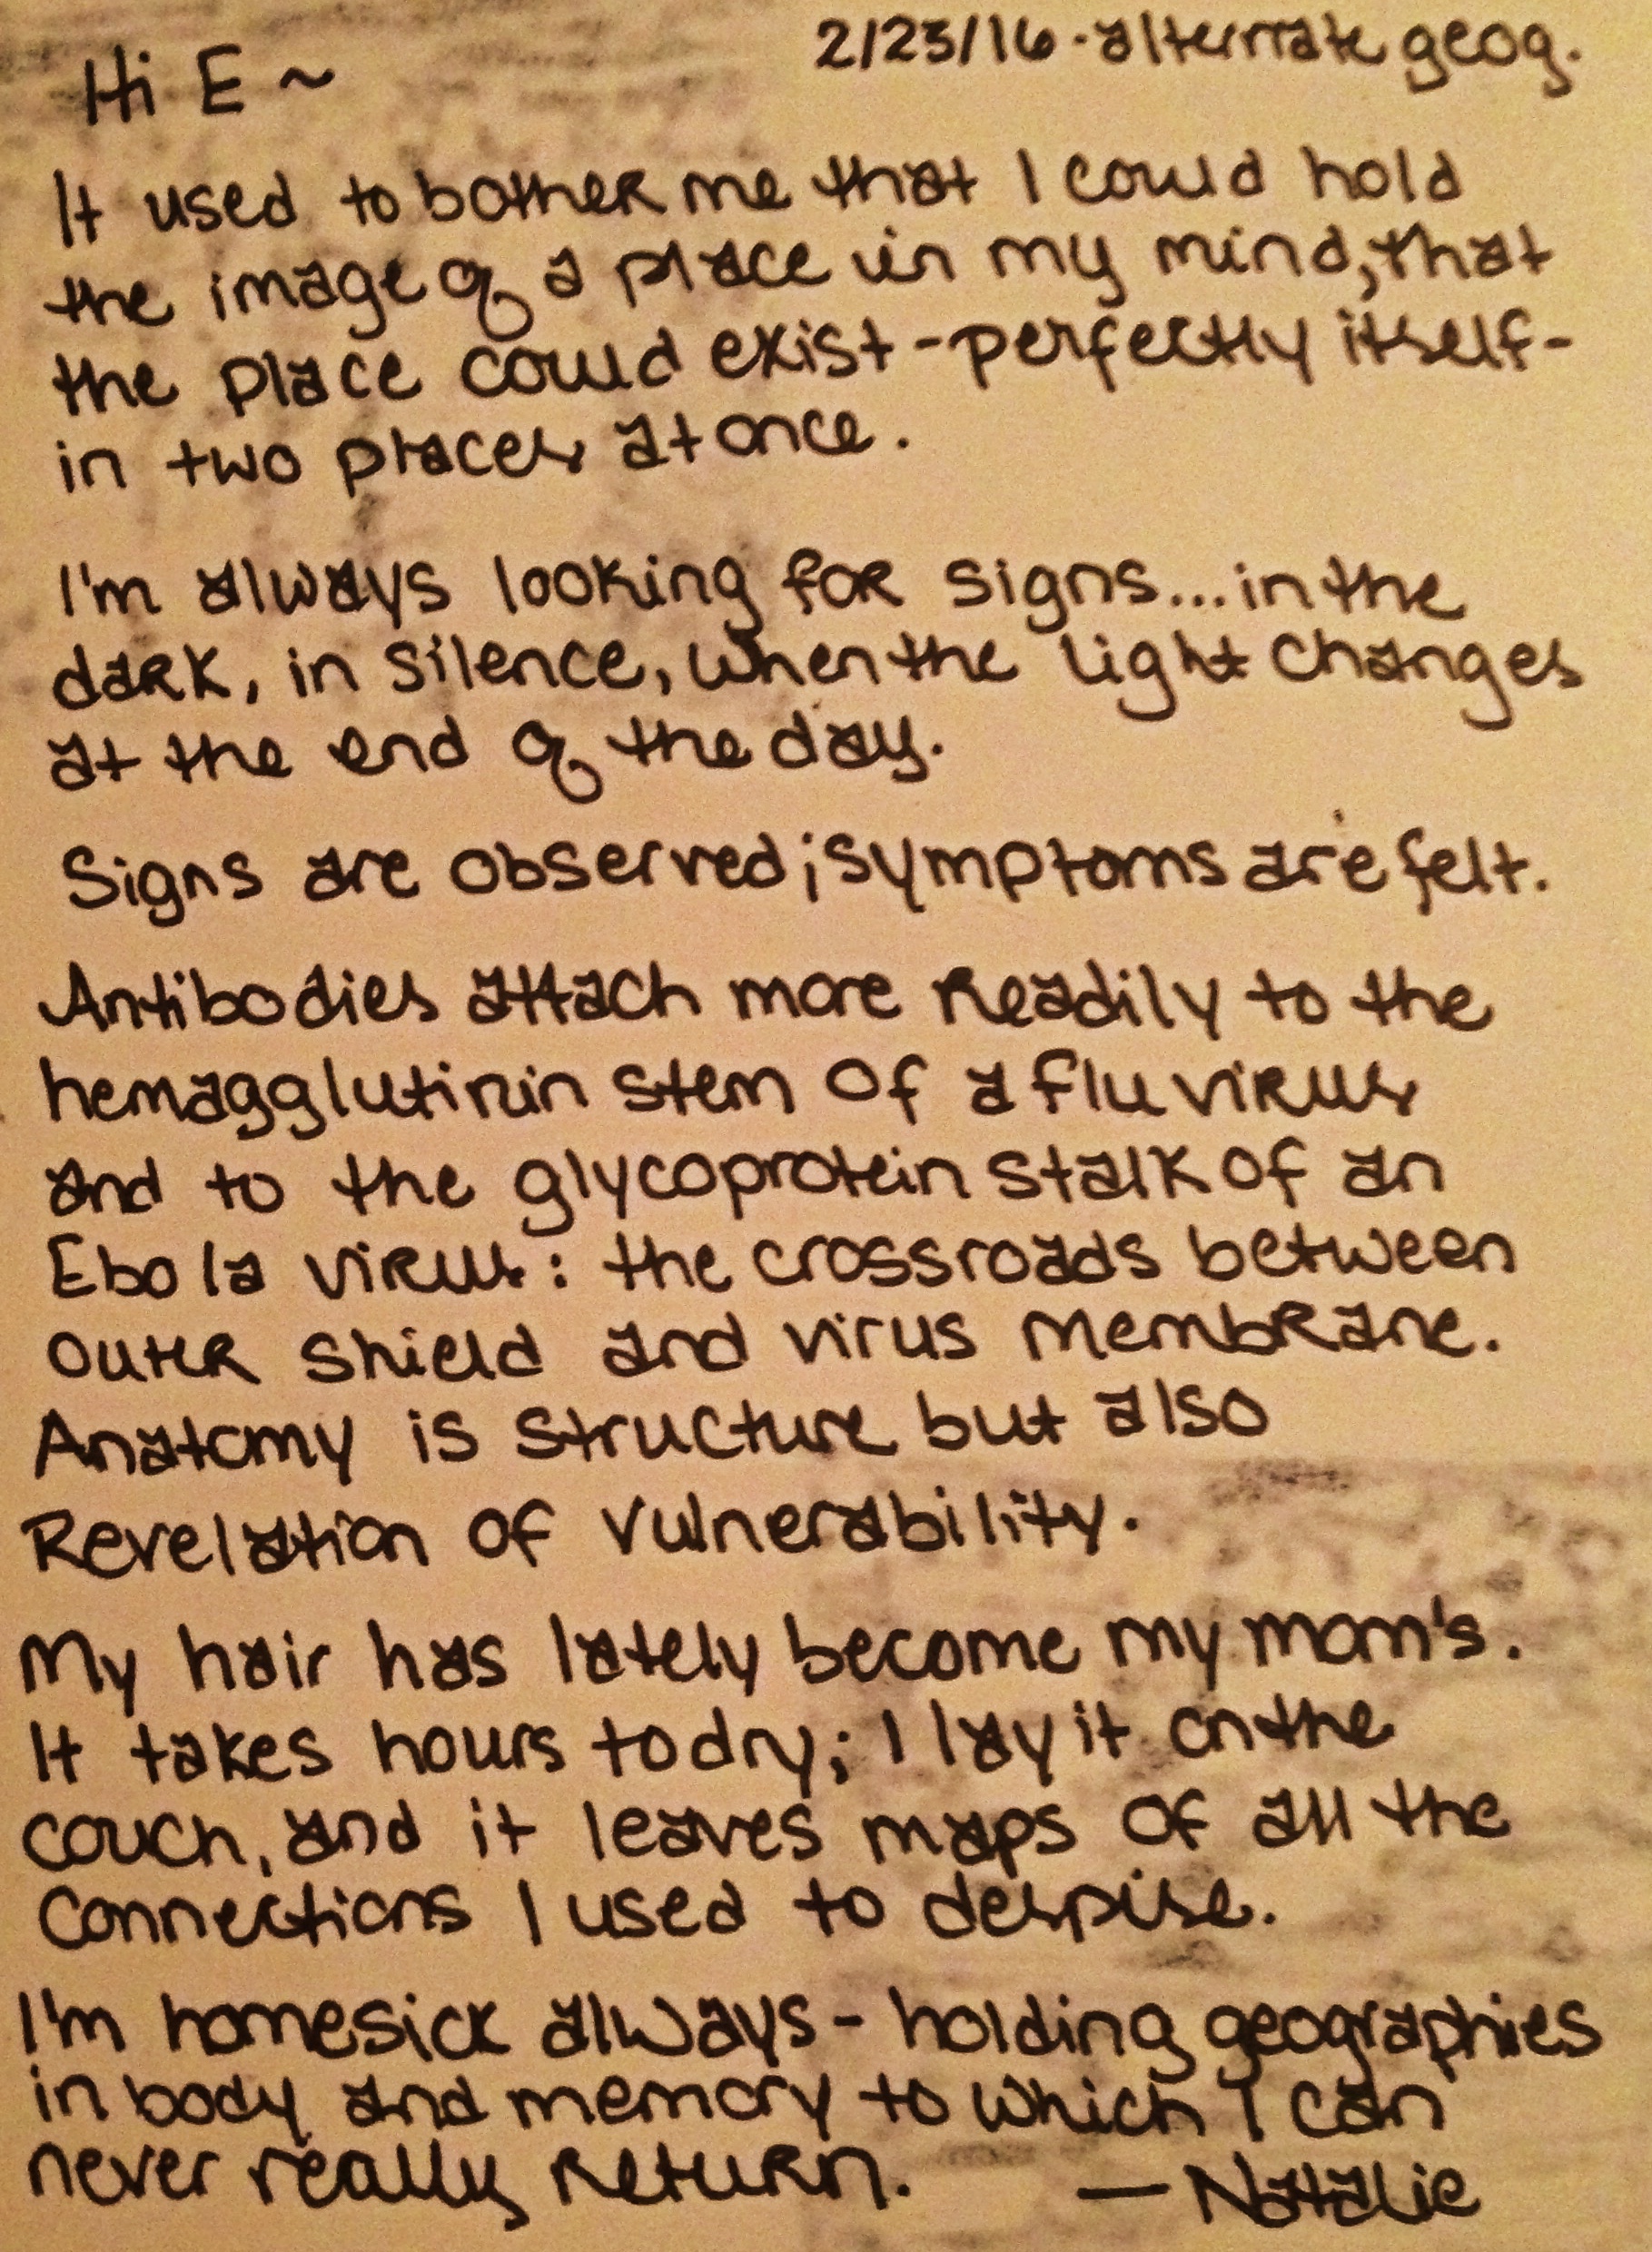 2/23/16 · alternate geog.
Hi E ~
It used to bother me that I could hold
the image of a place in my mind, that
the place could exist - perfectly itself -
in two places at once.
I'm always looking for signs... in the
dark, in silence, when the light changes
at the end of the day.
Signs are observed; symptoms are felt.
Antibodies attach more readily to the
hemagglutinin stem of a flu virus
and to the glycoprotein stalk of an
Ebola virus: the crossroads between
outer shield and virus membrane.
Anatomy is structure but also
Revelation of vulnerability.
My hair has lately become my mom's.
It takes hours to dry; I lay it on the
couch, and it leaves maps of all the
connections I used to despise.
I'm homesick always - holding geographies
in body and memory to which I can
never really return. — Natalie